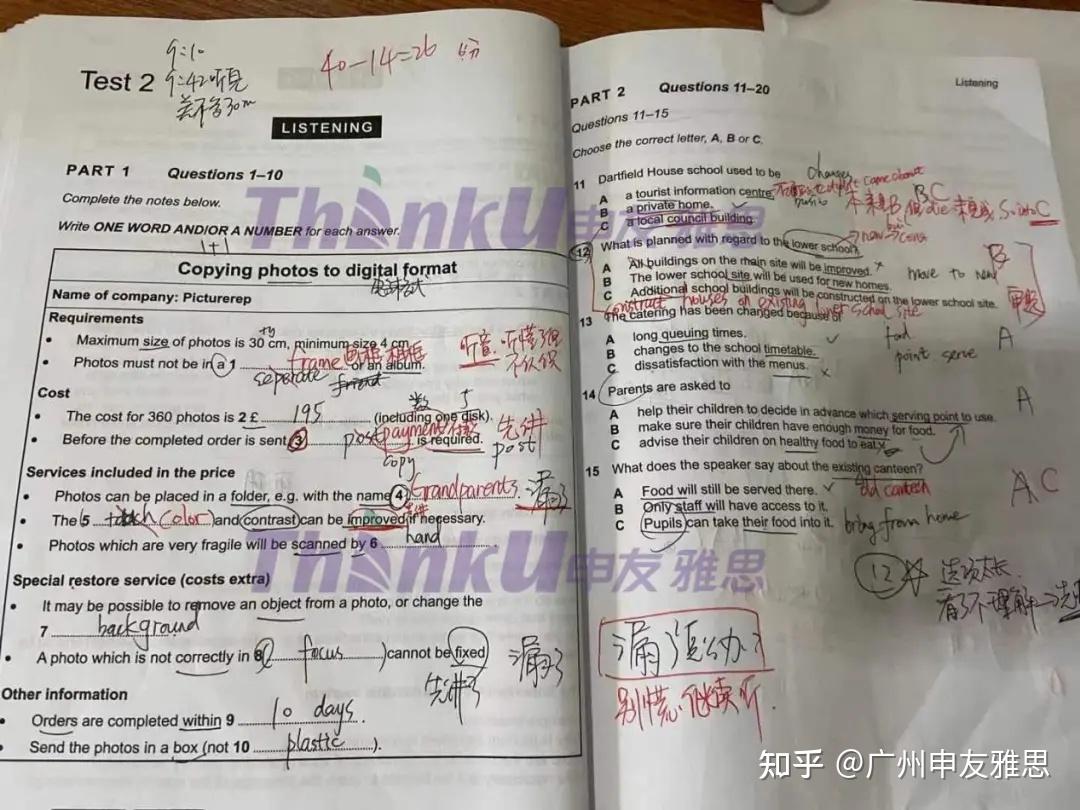 Test 2
9:10
9:42听见
差不多30m
40-14=26 6分
LISTENING
PART 1 Questions 1–10
Complete the notes below.
Write ONE WORD AND/OR A NUMBER for each answer.
1+1
Copying photos to digital format
Name of company: Picturerep
Requirements
• Maximum size of photos is 30 cm, minimum size 4 cm
• Photos must not be in a 1 frame or an album.
seperate friend
听音.听懂了但
不认识
Cost
• The cost for 360 photos is 2 £ 195 (including one disk).
• Before the completed order is sent 3 payment is required.
先讲
post
copy
Services included in the price
• Photos can be placed in a folder, e.g. with the name 4 Grandparents. 漏了
• The 5 (color) and contrast can be improved if necessary.
• Photos which are very fragile will be scanned by 6 hand
Special restore service (costs extra)
• It may be possible to remove an object from a photo, or change the
7 background
• A photo which is not correctly in 8 (focus) cannot be fixed 漏了
先讲了
Other information
• Orders are completed within 9 10 days.
• Send the photos in a box (not 10 plastic).
Listening
PART 2 Questions 11–20
Questions 11–15
Choose the correct letter, A, B or C.
11 Dartfield House school used to be
changes
came about
A a tourist information centre.
B a private home.
C a local council building.
BC
12 What is planned with regard to the lower school?
A All buildings on the main site will be improved. ×
B The lower school site will be used for new homes.
C Additional school buildings will be constructed on the lower school site.
B
move to new
审题
construct houses on existing lower school site
13 The catering has been changed because of
A long queuing times.
B changes to the school timetable.
C dissatisfaction with the menus. ×
food
point serve
A
14 Parents are asked to
A help their children to decide in advance which serving point to use.
B make sure their children have enough money for food.
C advise their children on healthy food to eat.
A
15 What does the speaker say about the existing canteen?
A Food will still be served there. old canteen
B Only staff will have access to it.
C Pupils can take their food into it. bring from home
AC
12 选项太长.
有了不理解
漏了怎么办?
别慌.继续听.
ThinkU申友雅思
ThinkU申友雅思
知乎 @广州申友雅思